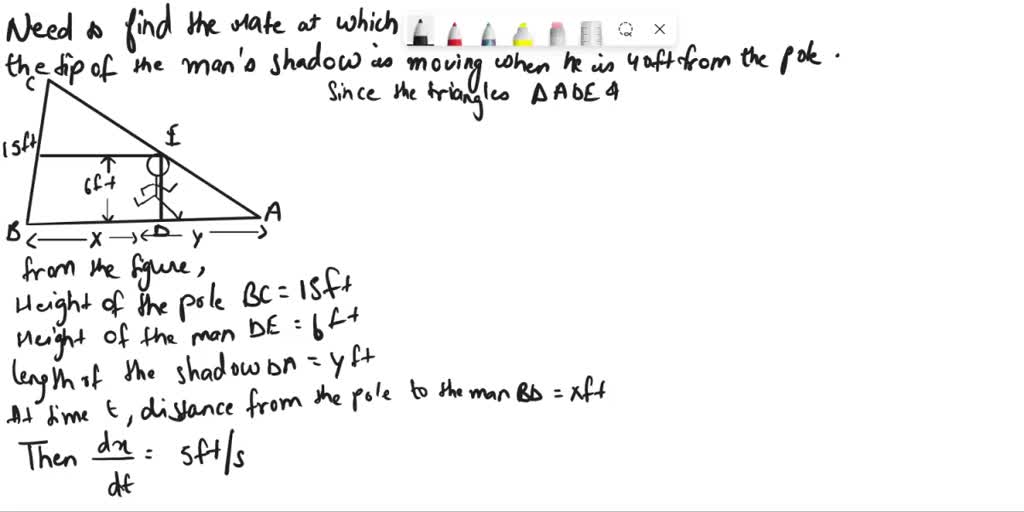 Need to find the rate at which
the tip of the man's shadow is moving when he is 40ft from the pole.
Since the triangles ΔADE &
C
15ft
E
6ft
B
x
D
y
A
from the figure,
Height of the pole BC = 15ft
Height of the man DE = 6ft
length of the shadow DA = y ft
At time t, distance from the pole to the man BD = xft
Then dx/dt = 5ft/s